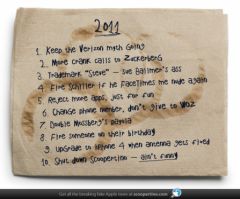 2011
1. Keep the Verizon myth going
2. More crank calls to Zuckerberg
3. Trademark "Steve" — sue Ballmer's ass
4. Fire Schiller if he FaceTimes me nude again
5. Reject more apps, just for fun
6. Change phone number, don't give to Woz
7. Double Mossberg's payola
8. Fire someone on their birthday
9. Upgrade to iPhone 4 when antenna gets fixed
10. Shut down Scoopertino — ain't funny
Get all the breaking fake Apple news at scoopertino.com